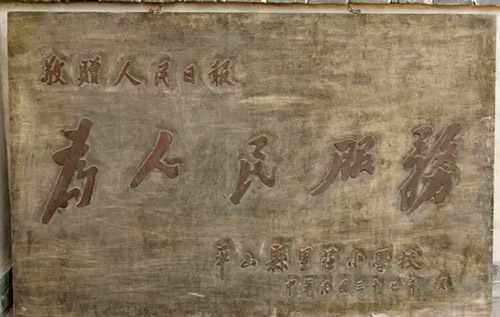 敬贈人民日報
為人民服務
平山縣里莊小學校
中華民國三十七年